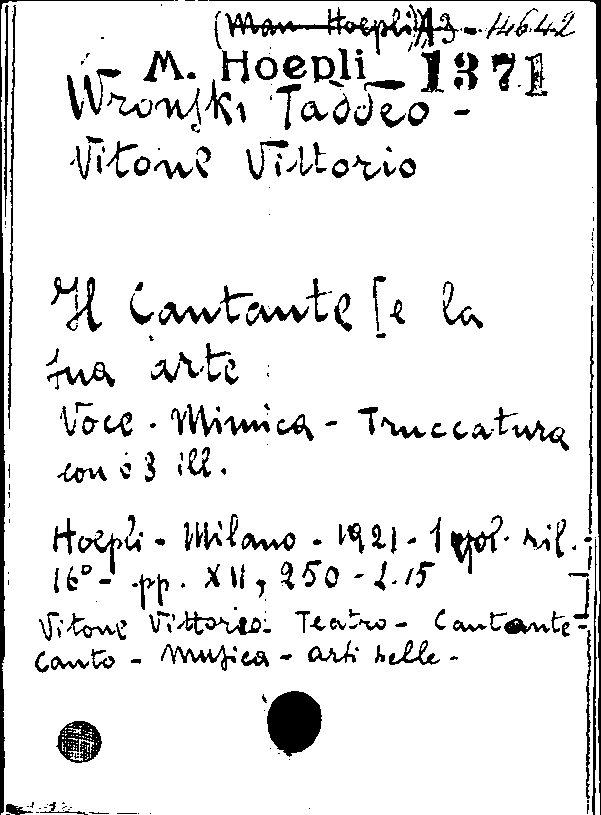 (Man. Hoepli) A3 - 14642
M. Hoepli 1371
Wronski Taddeo -
Vitone Vittorio
Il Cantante [e la
sua arte
Voce - Mimica - Truccatura
con 63 ill.
Hoepli - Milano - 1921 - 1 vol. ril. -
16° - pp. XII, 250 - L. 15
Vitone Vittorio - Teatro - Cantante -
Canto - Musica - arti belle -